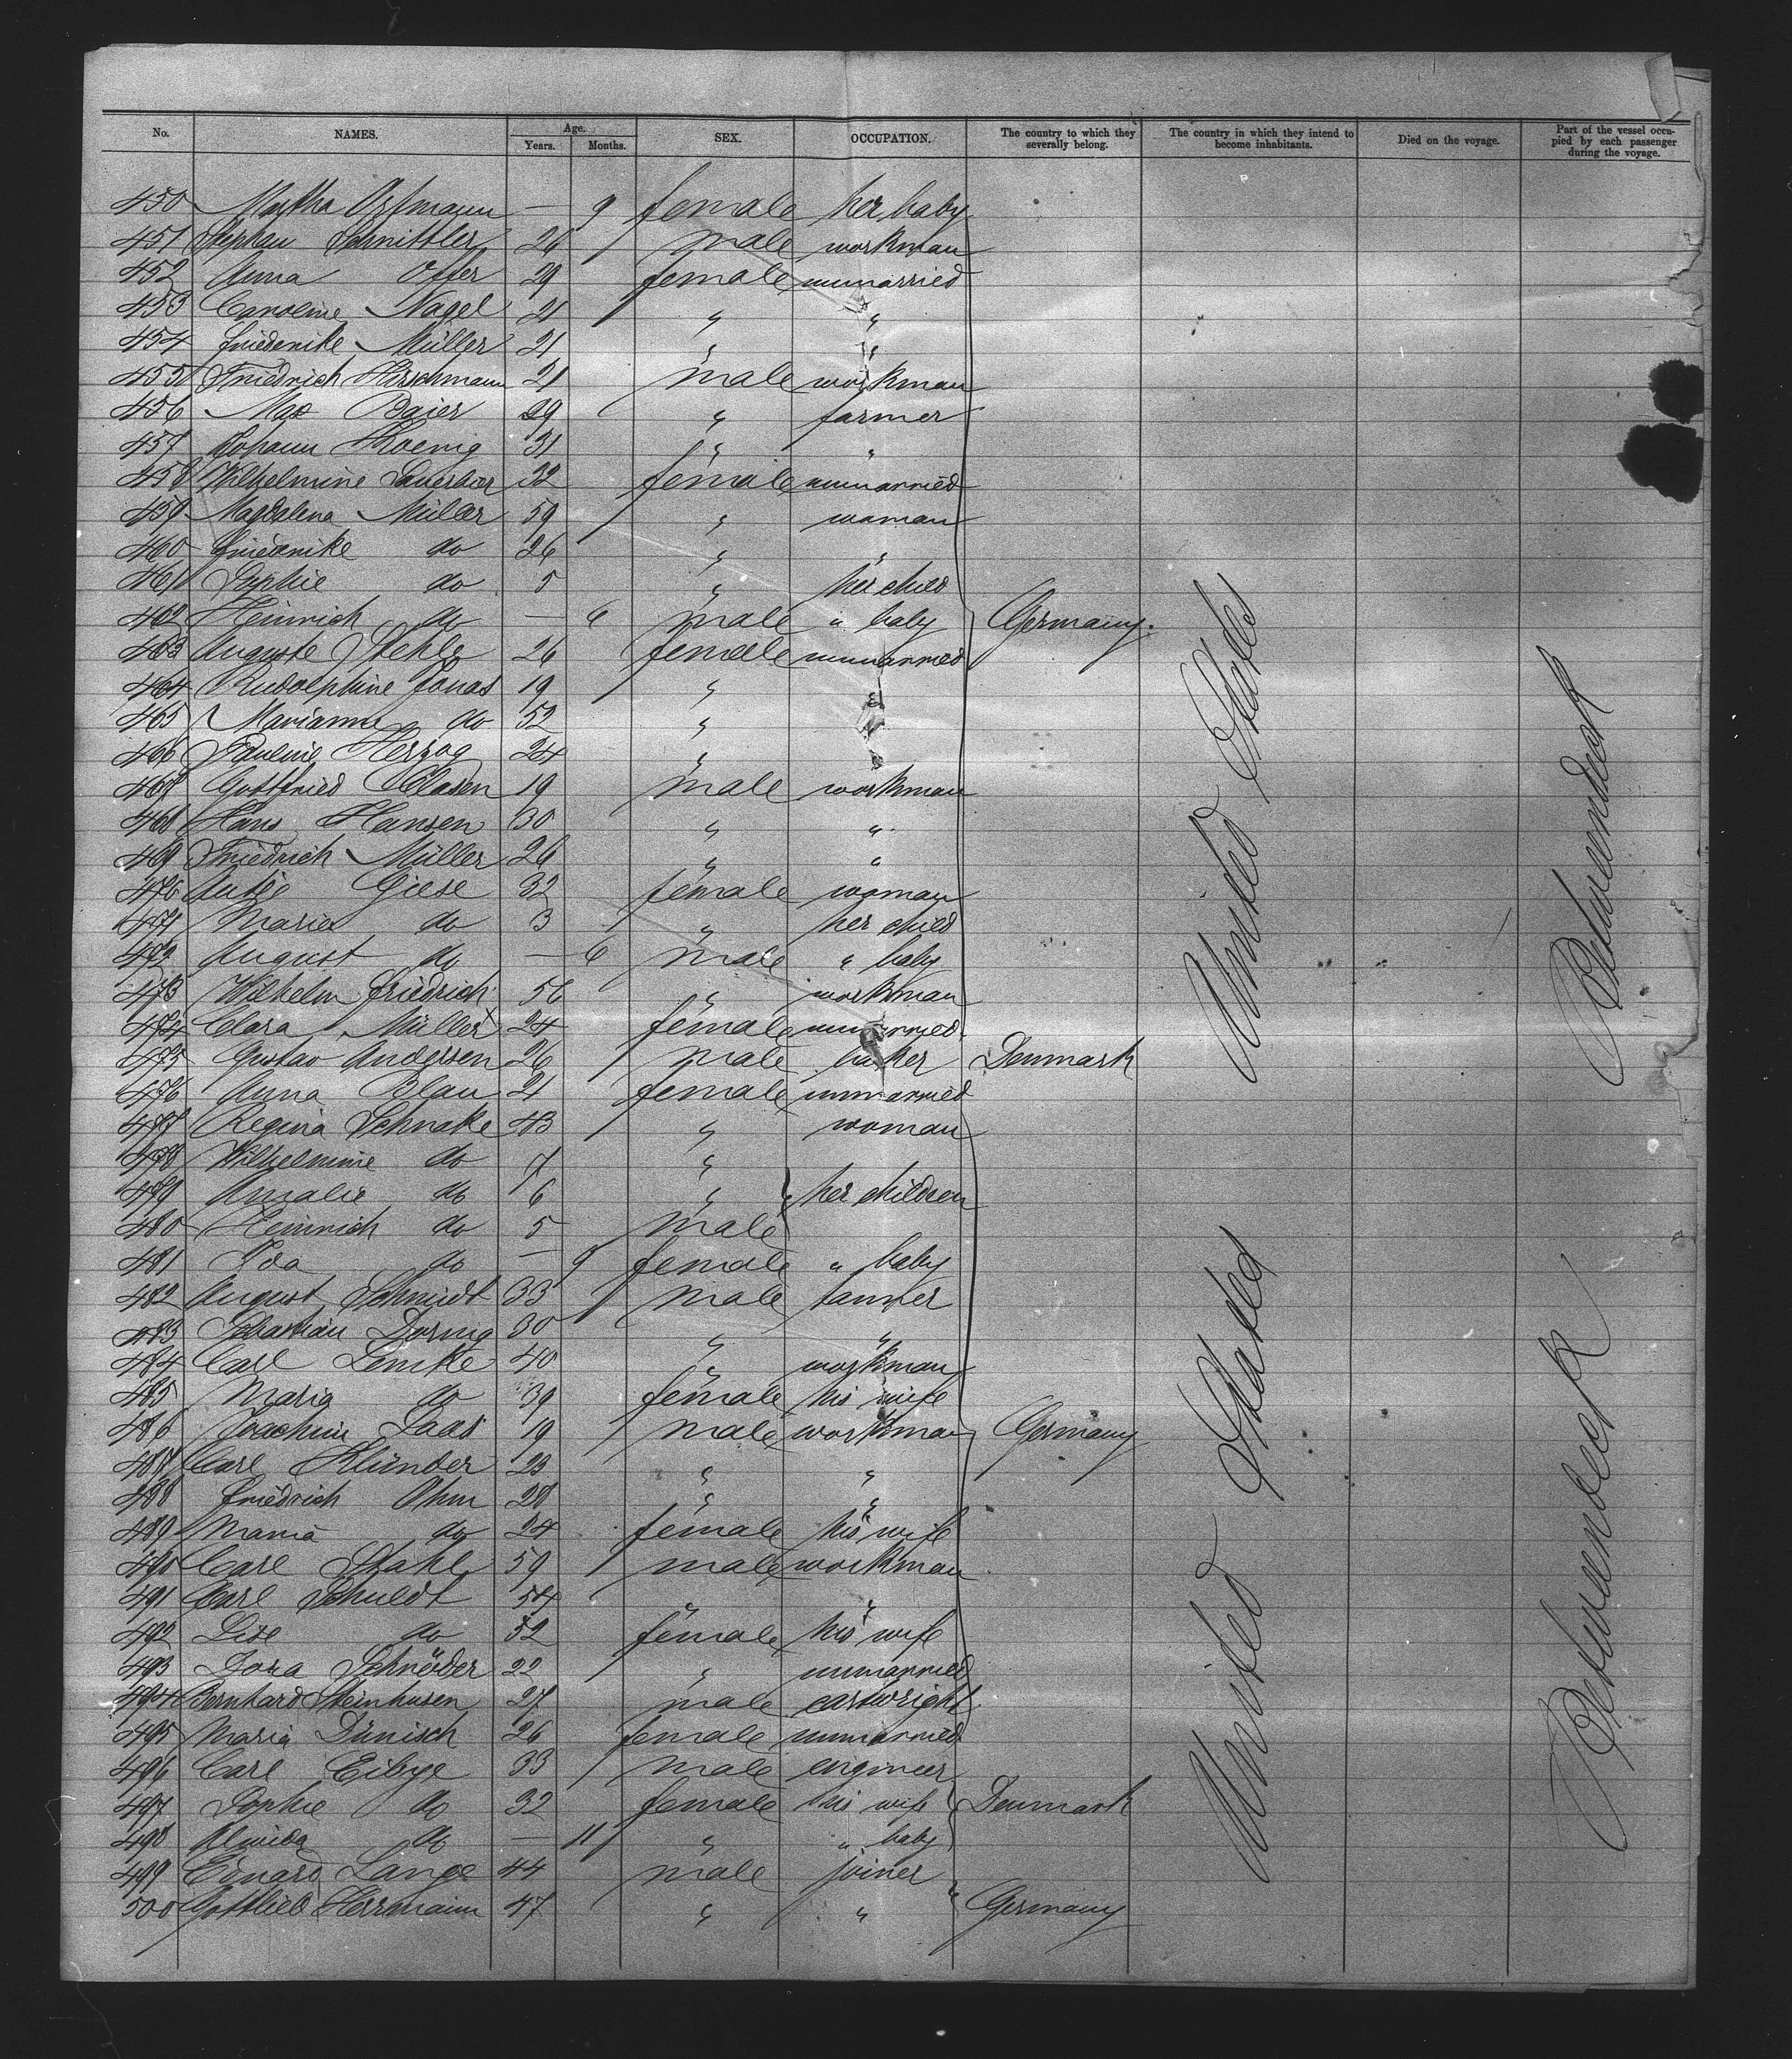 No. NAMES. Age. Years. Months. SEX. OCCUPATION. The country to which they severally belong. The country in which they intend to become inhabitants. Died on the voyage. Part of the vessel occupied by each passenger during the voyage.
450 Martha — 9 female her baby
451 Stephan Schnittler 26 male workman
452 Anna 29 female unmarried
453 Caroline Nagel 21 " "
454 Friederike Müller 21 " "
455 Friedrich Hirschmann 21 male workman
456 Max Baier 29 " farmer
457 Johann Koenig 31 " "
458 Wilhelmine 32 female unmarried
459 Magdalena Müller 59 " woman
460 Friederike do 26 " "
461 Sophie do 5 " her child
462 Heinrich do — 6 male " baby Germany.
463 Auguste Stehle 26 female unmarried
464 Rudolphine Jonas 19 " "
465 Marianne do 52 "
466 Pauline Herzog 24 "
467 Gottfried Clasen 19 male workman
468 Hans Hansen 30 " "
469 Friedrich Müller 26 " "
470 Antje Giese 32 female woman
471 Maria do 3 " her child
472 August do — 6 male " baby
473 Wilhelm Friedrich 56 " workman
474 Clara Müller 24 female unmarried
475 Gustav Andersen 26 male baker Denmark
476 Anna Blau 21 female unmarried
477 Regina Schnake 43 " woman
478 Wilhelmine do 7 "
479 Amalie do 6 " her children
480 Heinrich do 5 male
481 Ida do — 9 female " baby
482 August Schmidt 33 male tanner
483 Sebastian Doring 30 " "
484 Carl Lemke 40 " workman
485 Maria do 39 female his wife
486 Joachim Saas 19 male workman Germany
487 Carl Klünder 23 " "
488 Friedrich Ohm 28 " "
489 Maria do 24 female his wife
490 Carl Stahl 59 male workman
491 Carl Schuldt 54 " "
492 Lise do 52 female his wife
493 Dora Schröder 22 " unmarried
494 Bernhard Steinhusen 27 male cartwright
495 Maria Dünisch 26 female unmarried
496 Carl Eibye 33 male engineer
497 Sophie do 32 female his wife Denmark
498 Almida do — 11 " " baby
499 Eduard Lange 44 male joiner
500 Gottlieb Herrmann 47 " " Germany
United States
United States
Betweendeck
Betweendeck